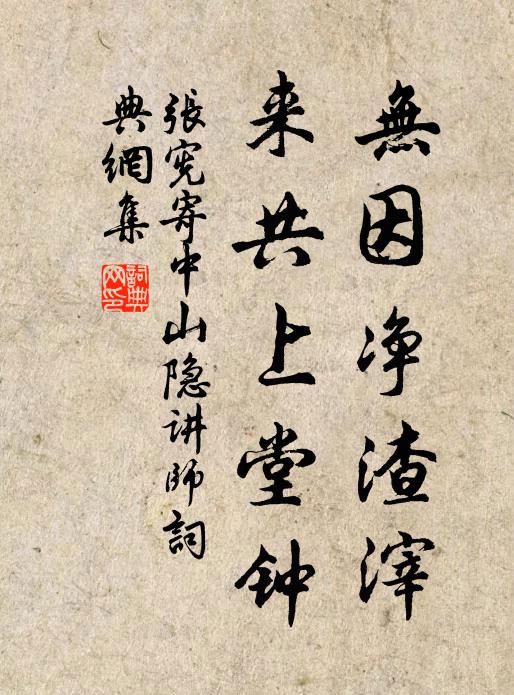 無因净渣滓
来共上堂钟
張宪寄中山隐讲師詞
典網集
詞典网印